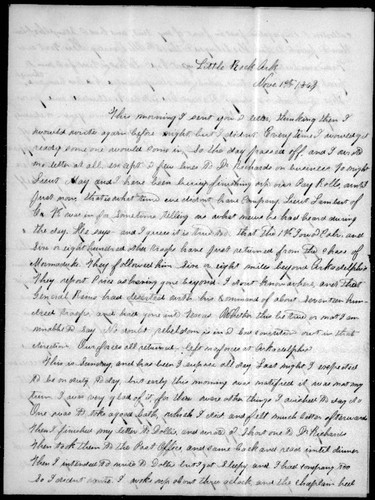 Little Rock Ark
Nov. 1st 1863
This morning I sent you a letter, thinking then I
would write again before night but I doesnt. Every time I would get
ready some one would come in. So the day passed off, and I wrote
no letter at all, except a few lines to Dr Richards on business. To night
Lieut Hay and I have been being something up our Pay Rolls, until
just now, that is when time we doesnt have Company. Lieut Lambert of
Co. K was in for sometime telling me what news he had heard during
the day. He says - and I guess it is true too, that the 1st Iowa Cav. and
five or eight hundred other troops have just returned from the chase of
Marmaduke. They followed him five or eight miles beyond Arkadelphia.
They report Price as having gone beyond I dont know where, and that
General Rains had deserted with his command of about seventeen hun-
dred troops, and bred you and Texas. Whether this be true or not I am
unable to say. No doubt rebeldom is in a bad condition out in that
direction. Our forces all returned - left no forces at Arkadelphia.
This is Sunday, and has been I suppose all day. Last night I expected
to be on duty to day, but early this morning was notified it was not my
turn. I was very glad of it, for there were other things I wished to day to do.
One was to take a good bath, which I did and felt much better afterward.
Then I finished my letter to Dollie, and wrote a short one to Dr Richards
then took them to the Post Office and came back and read until dinner.
Then I intended to write to Dollie but I got sleepy, and I had company too
so I doesnt write. I woke up about three oclock and the chaplain had